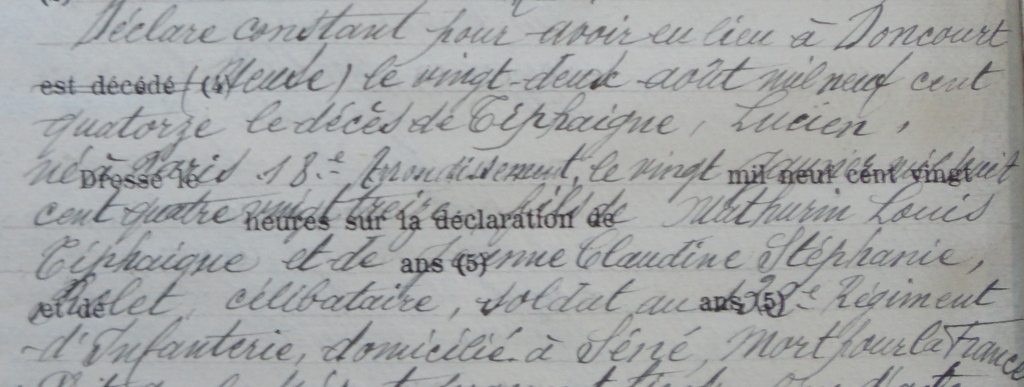 Déclare constant pour avoir eu lieu à Doncourt
est décédé (4) (Meuse) le vingt-deux août mil neuf cent
quatorze le décès de Tiphaigne, Lucien,
né à Paris 18.e Arrondissement, le vingt Janvier mil huit
Dressé le mil neuf cent vingt
cent quatre vingt treize fils de Mathurin Louis
heures sur la déclaration de
Tiphaigne et de Jeanne Claudine Stéphanie,
ans (5)
célibataire, soldat au Régiment
et de ans (5)
d'Infanterie, domicilié à Séné, Mort pour la France